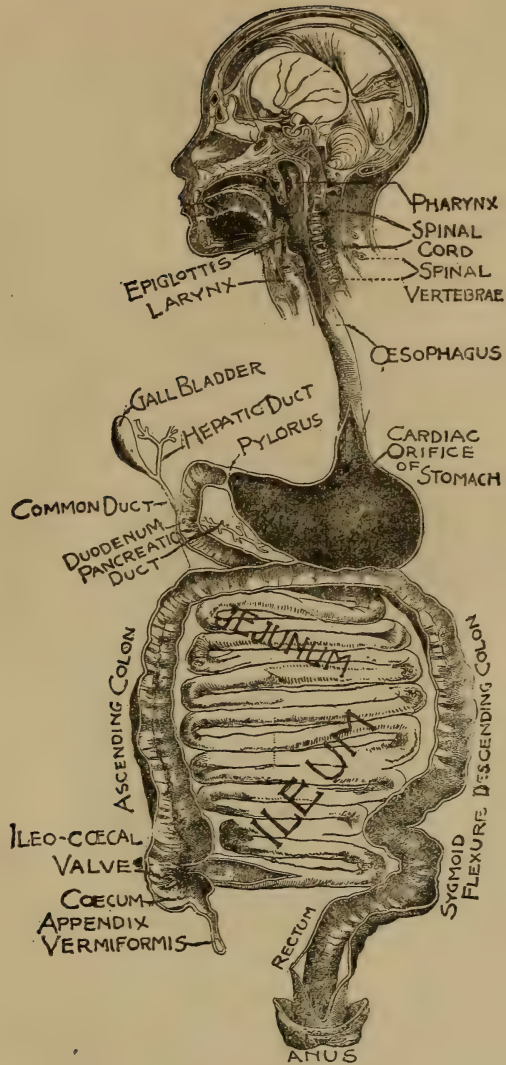 PHARYNX
SPINAL
CORD
SPINAL
VERTEBRAE
EPIGLOTTIS
LARYNX
ŒSOPHAGUS
GALL BLADDER
HEPATIC DUCT
PYLORUS
CARDIAC
ORIFICE
OF STOMACH
COMMON DUCT
DUODENUM
PANCREATIC
DUCT
JEJUNUM
ILEUM
ASCENDING COLON
DESCENDING COLON
SYGMOID
FLEXURE
ILEO-CŒCAL
VALVES
CŒCUM
APPENDIX
VERMIFORMIS
RECTUM
ANUS